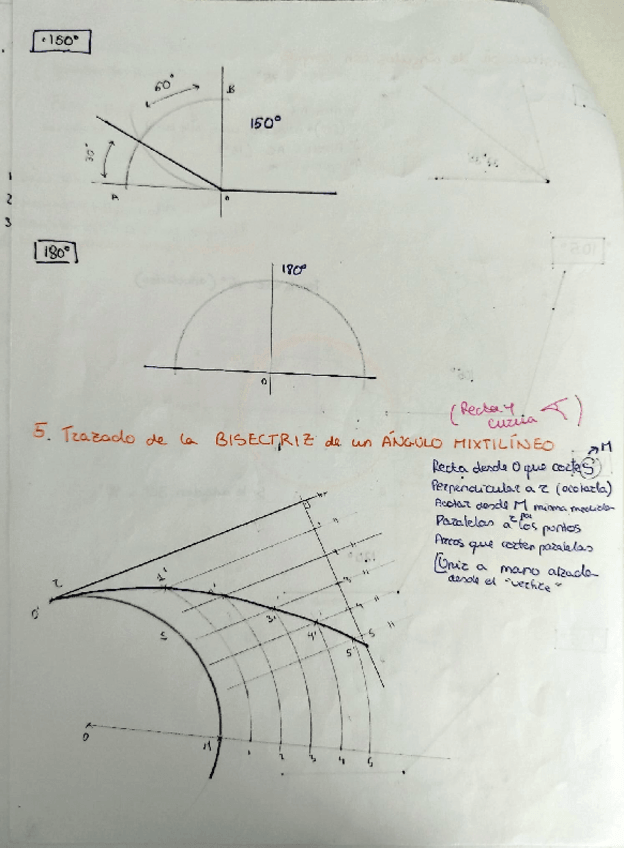 ·150°
60°
B
150°
30°
A
0
1
2
3
180°
180°
0
(Recta y
curva )
5. Trazado de la BISECTRIZ de un ÁNGULO MIXTILÍNEO
M
Recta desde O que corte S
Perpendicular a r (acotarla)
Acotar desde M misma medida
Paralelas a r por los puntos
Arcos que corten paralelas
Unir a mano alzada
desde el "vértice"
r
O'
1'
2'
3'
4'
5'
4
5
S
O
M
1
2
3
4
5